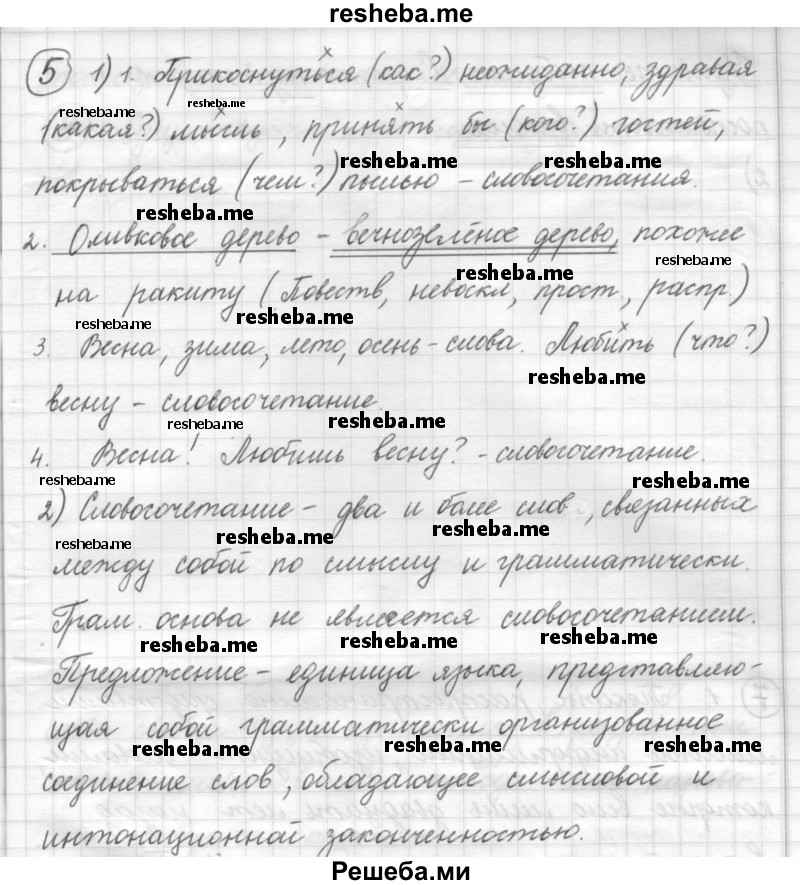 resheba.me
5 1) 1. Прикоснуться (как?) неожиданно, здравая
resheba.me resheba.me
(какая?) мысль, принять бы (кого?) гостей,
resheba.me resheba.me
покрываться (чем?) пылью – словосочетания.
resheba.me
2. Оливковое дерево – вечнозелёное дерево, похожее
resheba.me resheba.me
на ракиту (Повеств, невоскл, прост, распр.)
resheba.me resheba.me
3. Весна, зима, лето, осень – слова. Любить (что?)
resheba.me
весну – словосочетание.
resheba.me resheba.me
4. Весна! Любишь весну? – словосочетание.
resheba.me resheba.me
2) Словосочетание – два и боле слов, связанных
resheba.me resheba.me resheba.me
между собой по смыслу и грамматически.
Грам. основа не является словосочетанием.
resheba.me resheba.me resheba.me
Предложение – единица языка, представляю-
щая собой грамматически организованное
resheba.me resheba.me resheba.me
соединение слов, обладающее смысловой и
интонационной законченностью.
Решеба.ми